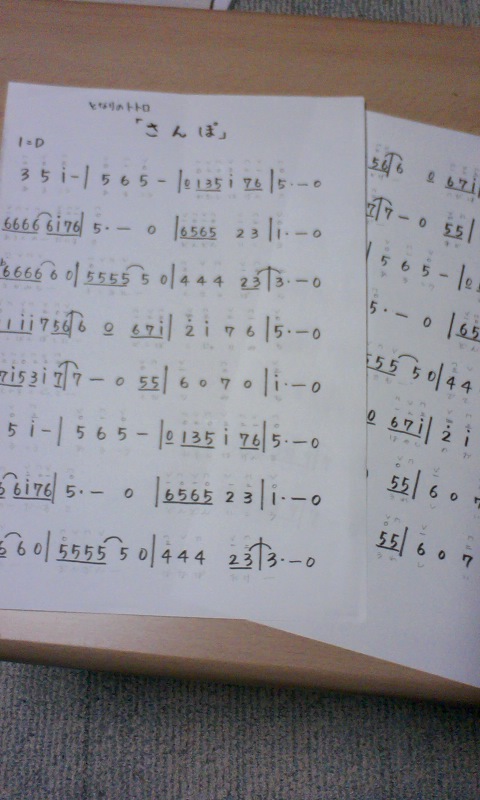 となりのトトロ
「さんぽ」
1=D
3 5 i - | 5 6 5 - | 0 1 3 5 i 7 6 | 5 · - 0
6 6 6 6 6 i 7 6 | 5 · - 0 | 6 5 6 5 2 3 | i · - 0
6 6 6 6 6 0 | 5 5 5 5 5 0 | 4 4 4 2 3 | 3 · - 0
1 1 i i 7 5 6 | 6 0 6 7 i | 2 i 7 6 | 5 · - 0
7 i 5 3 i 7 | 7 - 0 5 5 | 6 0 7 0 | i · - 0
5 i - | 5 6 5 - | 0 1 3 5 i 7 6 | 5 · - 0
6 6 i 7 6 | 5 · - 0 | 6 5 6 5 2 3 | 1 · - 0
6 6 0 | 5 5 5 5 5 0 | 4 4 4 2 3 | 3 · - 0
5 6 | 6 0 6 7 i
7 | 7 - 0 5 5 |
5 6 5 - | 0
5 · - 0 | 6 5
5 5 5 5 0 | 4 4
0 6 7 i | 2 i
5 5 | 6 0 7
5 5 | 6 0 7